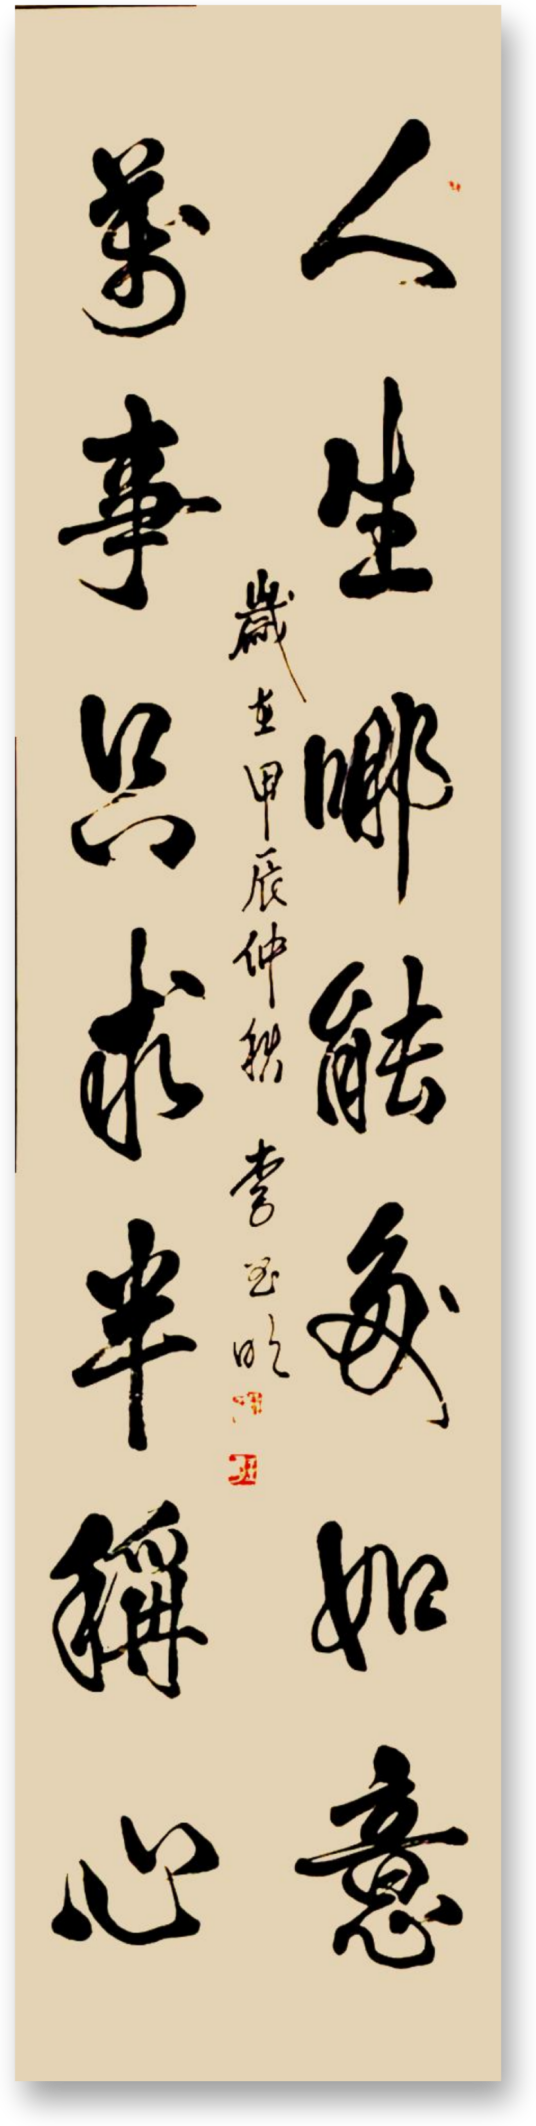 人生哪能多如意
萬事只求半稱心
歲在甲辰仲秋 李